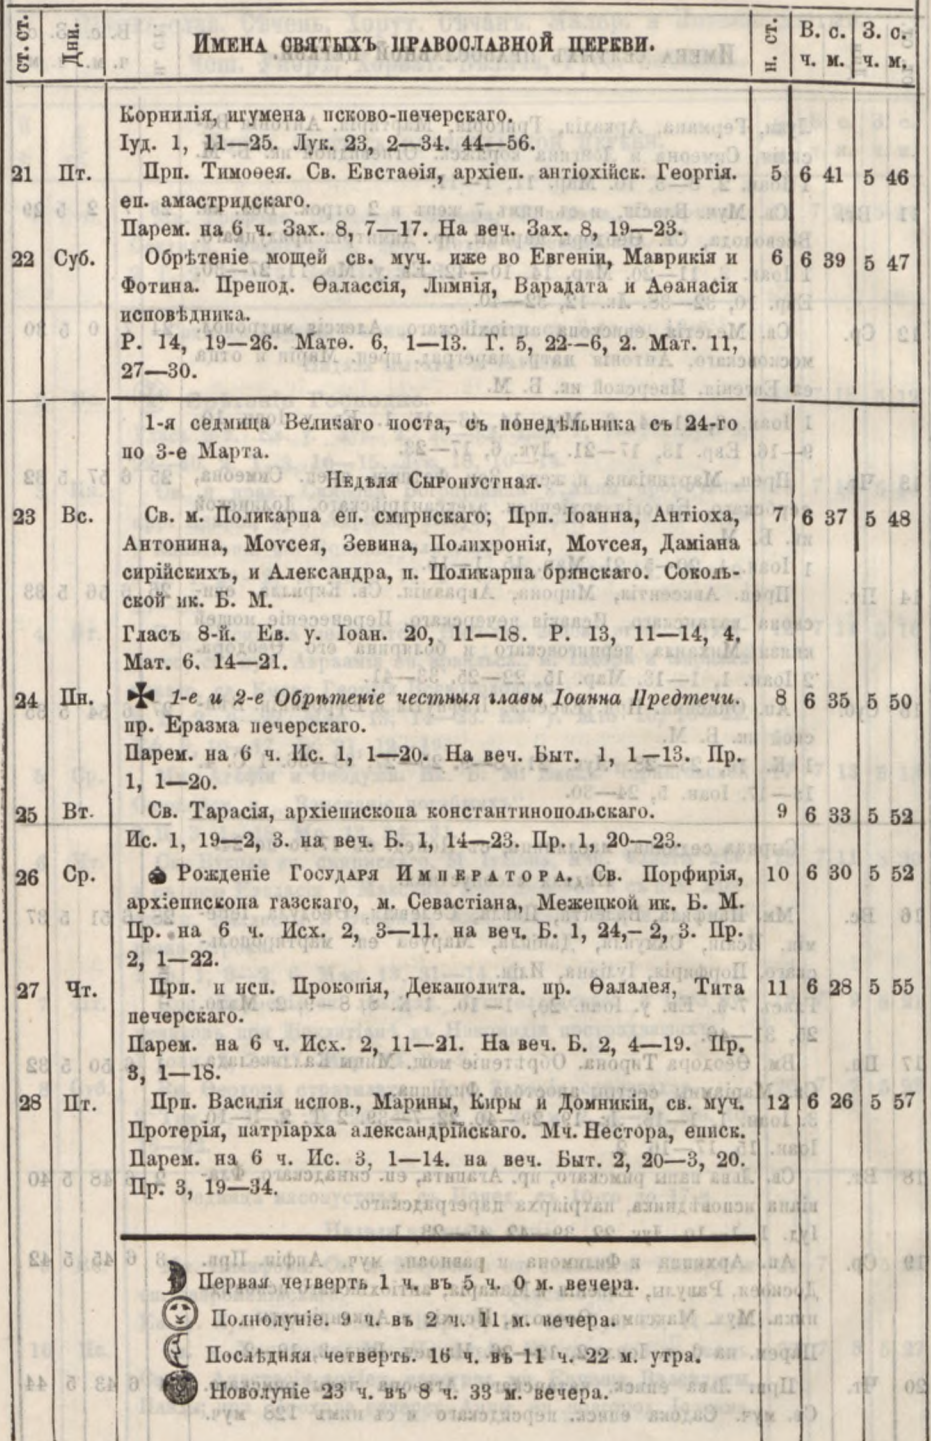 ст. ст. Дни. Имена святыхъ православной церкви. н. ст. В. с. З. с.
ч. м. ч. м.
Корнилія, игумена псково-печерскаго.
Іуд. 1, 11—25. Лук. 23, 2—34. 44—56.
21 Пт. Прп. Тимоѳея. Св. Евстаѳія, архіеп. антіохійск. Георгія. 5 6 41 5 46
еп. амастридскаго.
Парем. на 6 ч. Зах. 8, 7—17. На веч. Зах. 8, 19—23.
22 Суб. Обрѣтеніе мощей св. муч. иже во Евгеніи, Маврикія и 6 6 39 5 47
Фотина. Препод. Ѳалассія, Лимнія, Варадата и Аѳанасія
исповѣдника.
Р. 14, 19—26. Матѳ. 6, 1—13. Г. 5, 22—6, 2. Мат. 11,
27—30.
1-я седмица Великаго поста, съ понедѣльника съ 24-го
по 3-е Марта.
Недѣля Сыропустная.
23 Вс. Св. м. Поликарпа еп. смирнскаго; Прп. Іоанна, Антіоха, 7 6 37 5 48
Антонина, Моѵсея, Зевина, Полихронія, Моѵсея, Даміана
сирійскихъ, и Александра, п. Поликарпа брянскаго. Соколь-
ской ик. Б. М.
Гласъ 8-й. Ев. у. Іоан. 20, 11—18. Р. 13, 11—14, 4.
Мат. 6. 14—21.
24 Пн. ✠ 1-е и 2-е Обрѣтеніе честныя главы Іоанна Предтечи. 8 6 35 5 50
пр. Еразма печерскаго.
Парем. на 6 ч. Ис. 1, 1—20. На веч. Быт. 1, 1—13. Пр.
1, 1—20.
25 Вт. Св. Тарасія, архіепископа константинопольскаго. 9 6 33 5 52
Ис. 1, 19—2, 3. на веч. Б. 1, 14—23. Пр. 1, 20—23.
26 Ср. Рожденіе Государя Императора. Св. Порфирія, 10 6 30 5 52
архіепископа газскаго, м. Севастіана, Межецкой ик. Б. М.
Пр. на 6 ч. Исх. 2, 3—11. на веч. Б. 1, 24,—2, 3. Пр.
2, 1—22.
27 Чт. Прп. и исп. Прокопія, Декаполита. пр. Ѳалалея, Тита 11 6 28 5 55
печерскаго.
Парем. на 6 ч. Исх. 2, 11—21. На веч. Б. 2, 4—19. Пр.
3, 1—18.
28 Пт. Прп. Василія испов., Марины, Киры и Домникіи, св. муч. 12 6 26 5 57
Протерія, патріарха александрійскаго. Мч. Нестора, еписк.
Парем. на 6 ч. Ис. 3, 1—14. на веч. Быт. 2, 20—3, 20.
Пр. 3, 19—34.
Первая четверть 1 ч. въ 5 ч. 0 м. вечера.
Полнолуніе. 9 ч. въ 2 ч. 11 м. вечера.
Послѣдняя четверть. 16 ч. въ 11 ч. 22 м. утра.
Новолуніе 23 ч. въ 8 ч. 33 м. вечера.